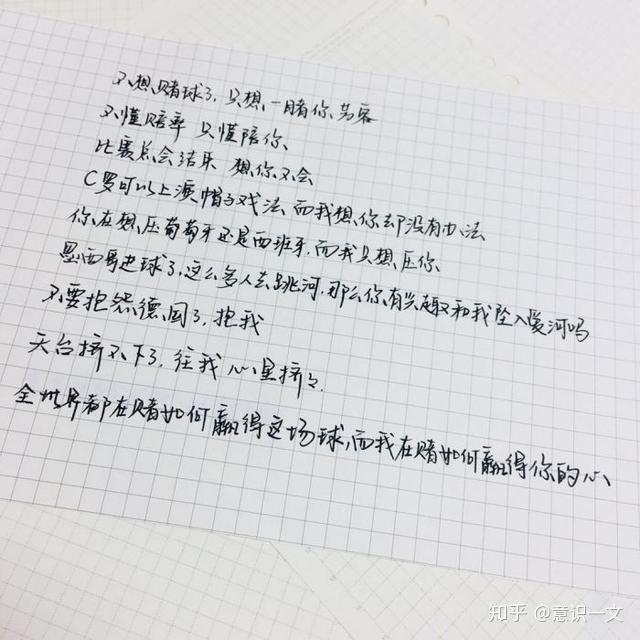 不想赌球了,只想一睹你芳容
不懂赔率 只懂陪你
比赛总会结束 想你不会
C罗可以上演帽子戏法 而我想你却没有办法
你在想压葡萄牙还是西班牙,而我只想压你
墨西哥进球了,这么多人去跳河,那么你有兴趣和我坠入爱河吗
不要抱怨德国了,抱我
天台挤不下了,往我心里挤挤
全世界都在赌如何赢得这场球,而我在赌如何赢得你的心
知乎 @意识一文